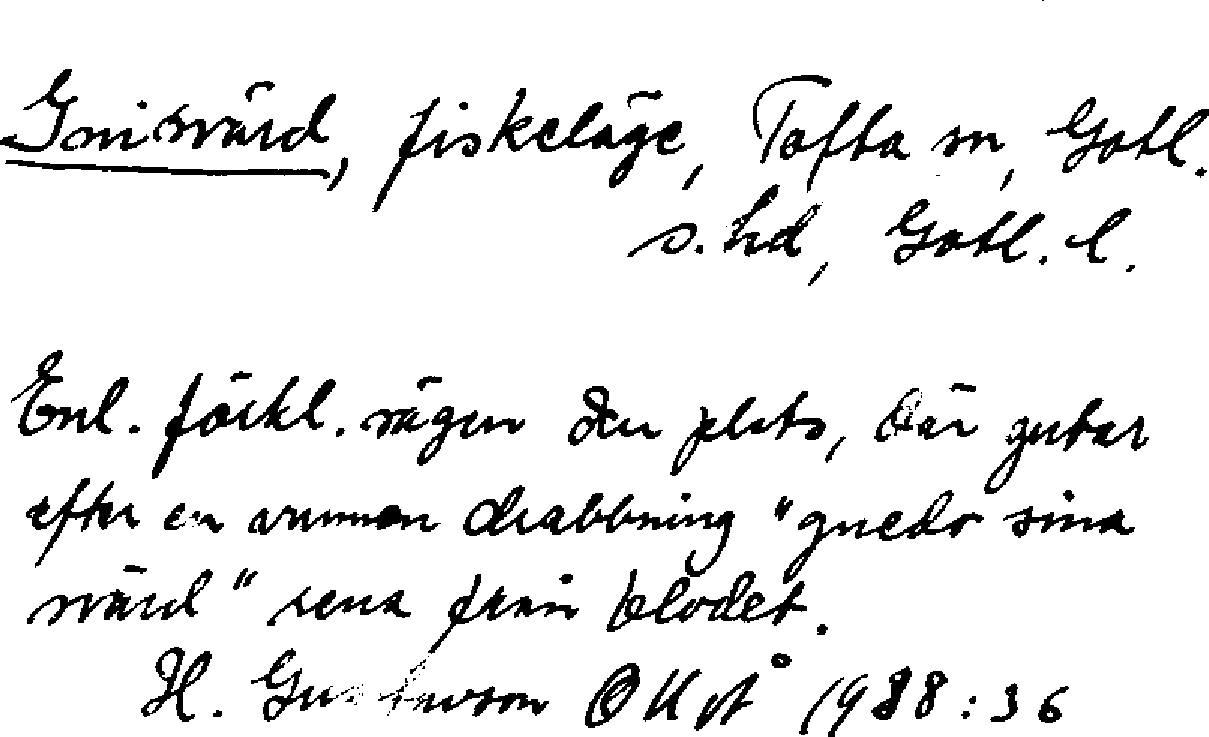 Gnisvärd, fiskeläge, Tofta sn, Gotl.
s. hd, Gotl. l.
Enl. förkl. sägen den plats, där gutar
efter en vunnen drabbning "gnedo sina
svärd" rena från blodet.
H. Gustavson OKvÅ 1938:36